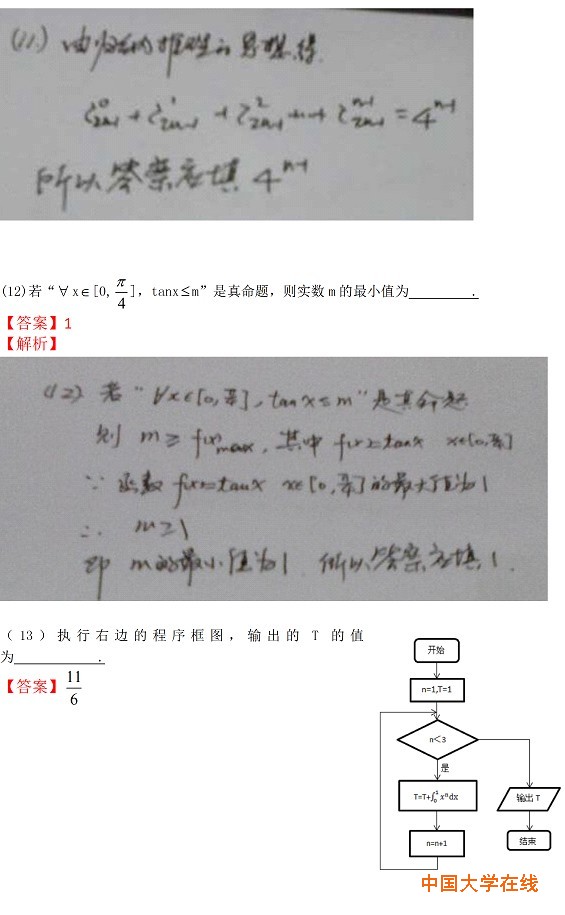 (11) 由归纳推理的思想得
C⁰₂ₙ₋₁ + C¹₂ₙ₋₁ + C²₂ₙ₋₁ + … + Cⁿ⁻¹₂ₙ₋₁ = 4ⁿ⁻¹
所以答案应填 4ⁿ⁻¹
(12)若“∀x∈[0, π/4], tanx≤m”是真命题，则实数m的最小值为________.
【答案】1
【解析】
(12) 若“∀x∈[0, π/4], tanx≤m”是真命题
则 m≥f(x)max, 其中 f(x)=tanx x∈[0, π/4]
∵ 函数 f(x)=tanx x∈[0, π/4]的最大值为1
∴ m≥1
即 m的最小值为1 所以答案应填1.
（13）执行右边的程序框图，输出的T的值
为________.
【答案】11/6
开始
n=1,T=1
n＜3
是
T=T+∫₀¹xⁿdx
输出T
n=n+1
结束
中国大学在线